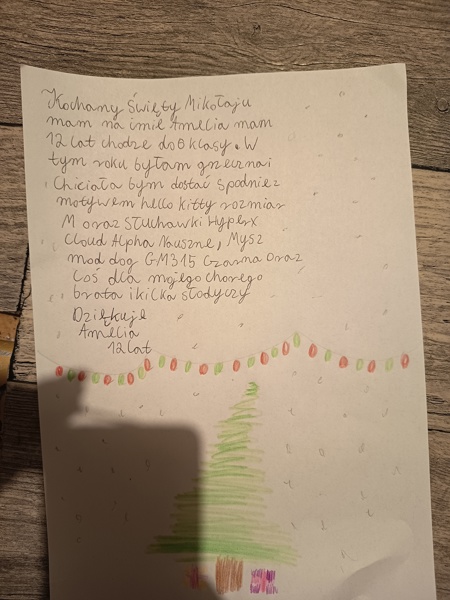 Kochany Święty Mikołaju
mam na imie Amelia mam
12 lat chodze do 6 klasy. W
tym roku byłam grzeczna i
Chiciała bym dostać spodnie z
motywem hello kitty rozmiar
M oraz słuchawki HyperX
Cloud Alpha Nauszne, Mysz
mad dog GM315 Czarna oraz
Coś dla mojego chorego
brata i kilka słodyczy
Dziękuje
Amelia
12 lat